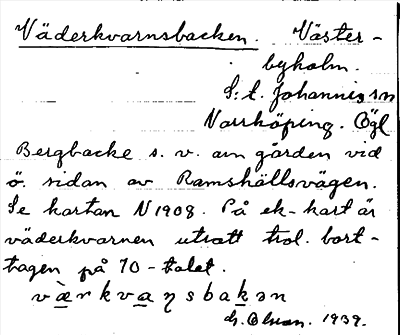 Väderkvarnsbacken. Väster-
byholm.
S:t. Johannis sn
Norrköping. Ögl
Bergbacke s. v. om gården vid
ö. sidan av Ramshällsvägen.
Se kartan N 1908. På ek-kart är
väderkvarnen utsatt trol. bort-
tagen på 70-talet.
vὰrkvaƞsbakən
1939.